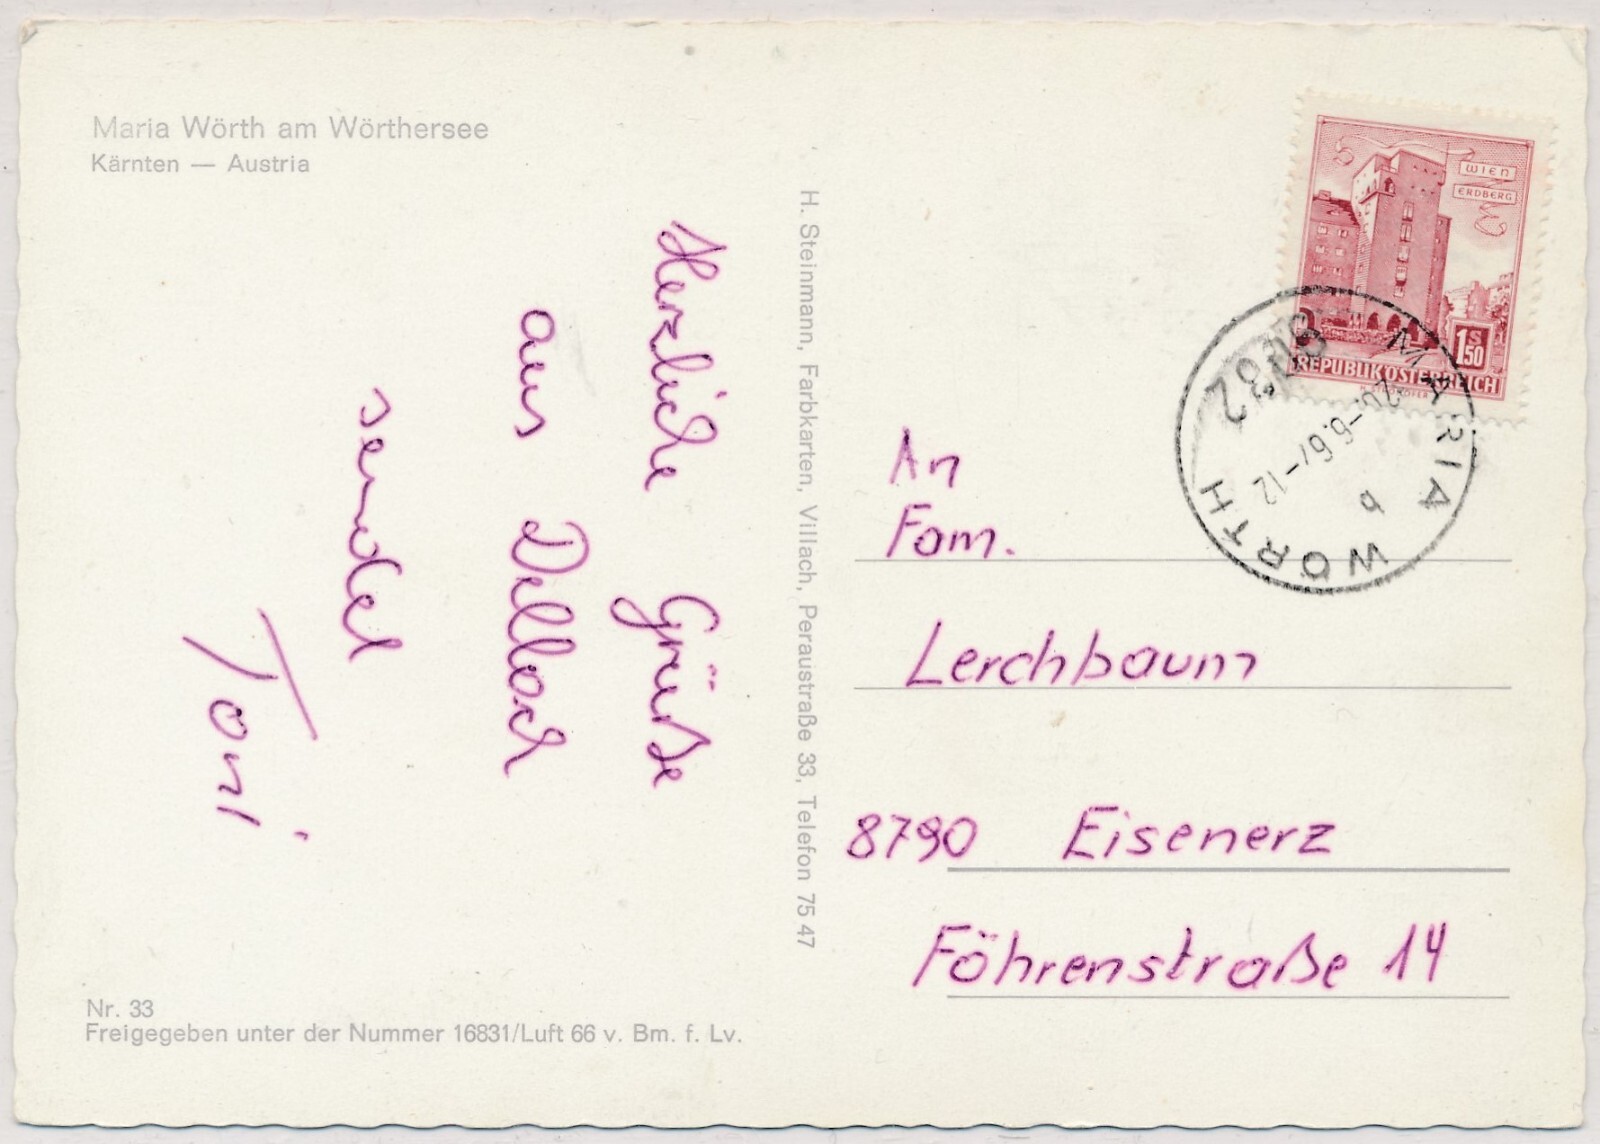 Maria Wörth am Wörthersee
Kärnten — Austria
Herzliche Grüße
aus Dellach
sendet
Toni
Nr. 33
Freigegeben unter der Nummer 16831/Luft 66 v. Bm. f. Lv.
H. Steinmann, Farbkarten, Villach, Peraustraße 33, Telefon 75 47
WIEN
ERDBERG
1S50
REPUBLIK ÖSTERREICH
MARIA WÖRTH
26.-6.67-12
b
An
Fam.
Lerchbaum
8790 Eisenerz
Föhrenstraße 14